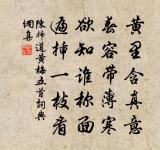 黄里含真意
春容带薄寒
欲知谁称面
遍插一枝看
陈师道黄梅五首词典
网集